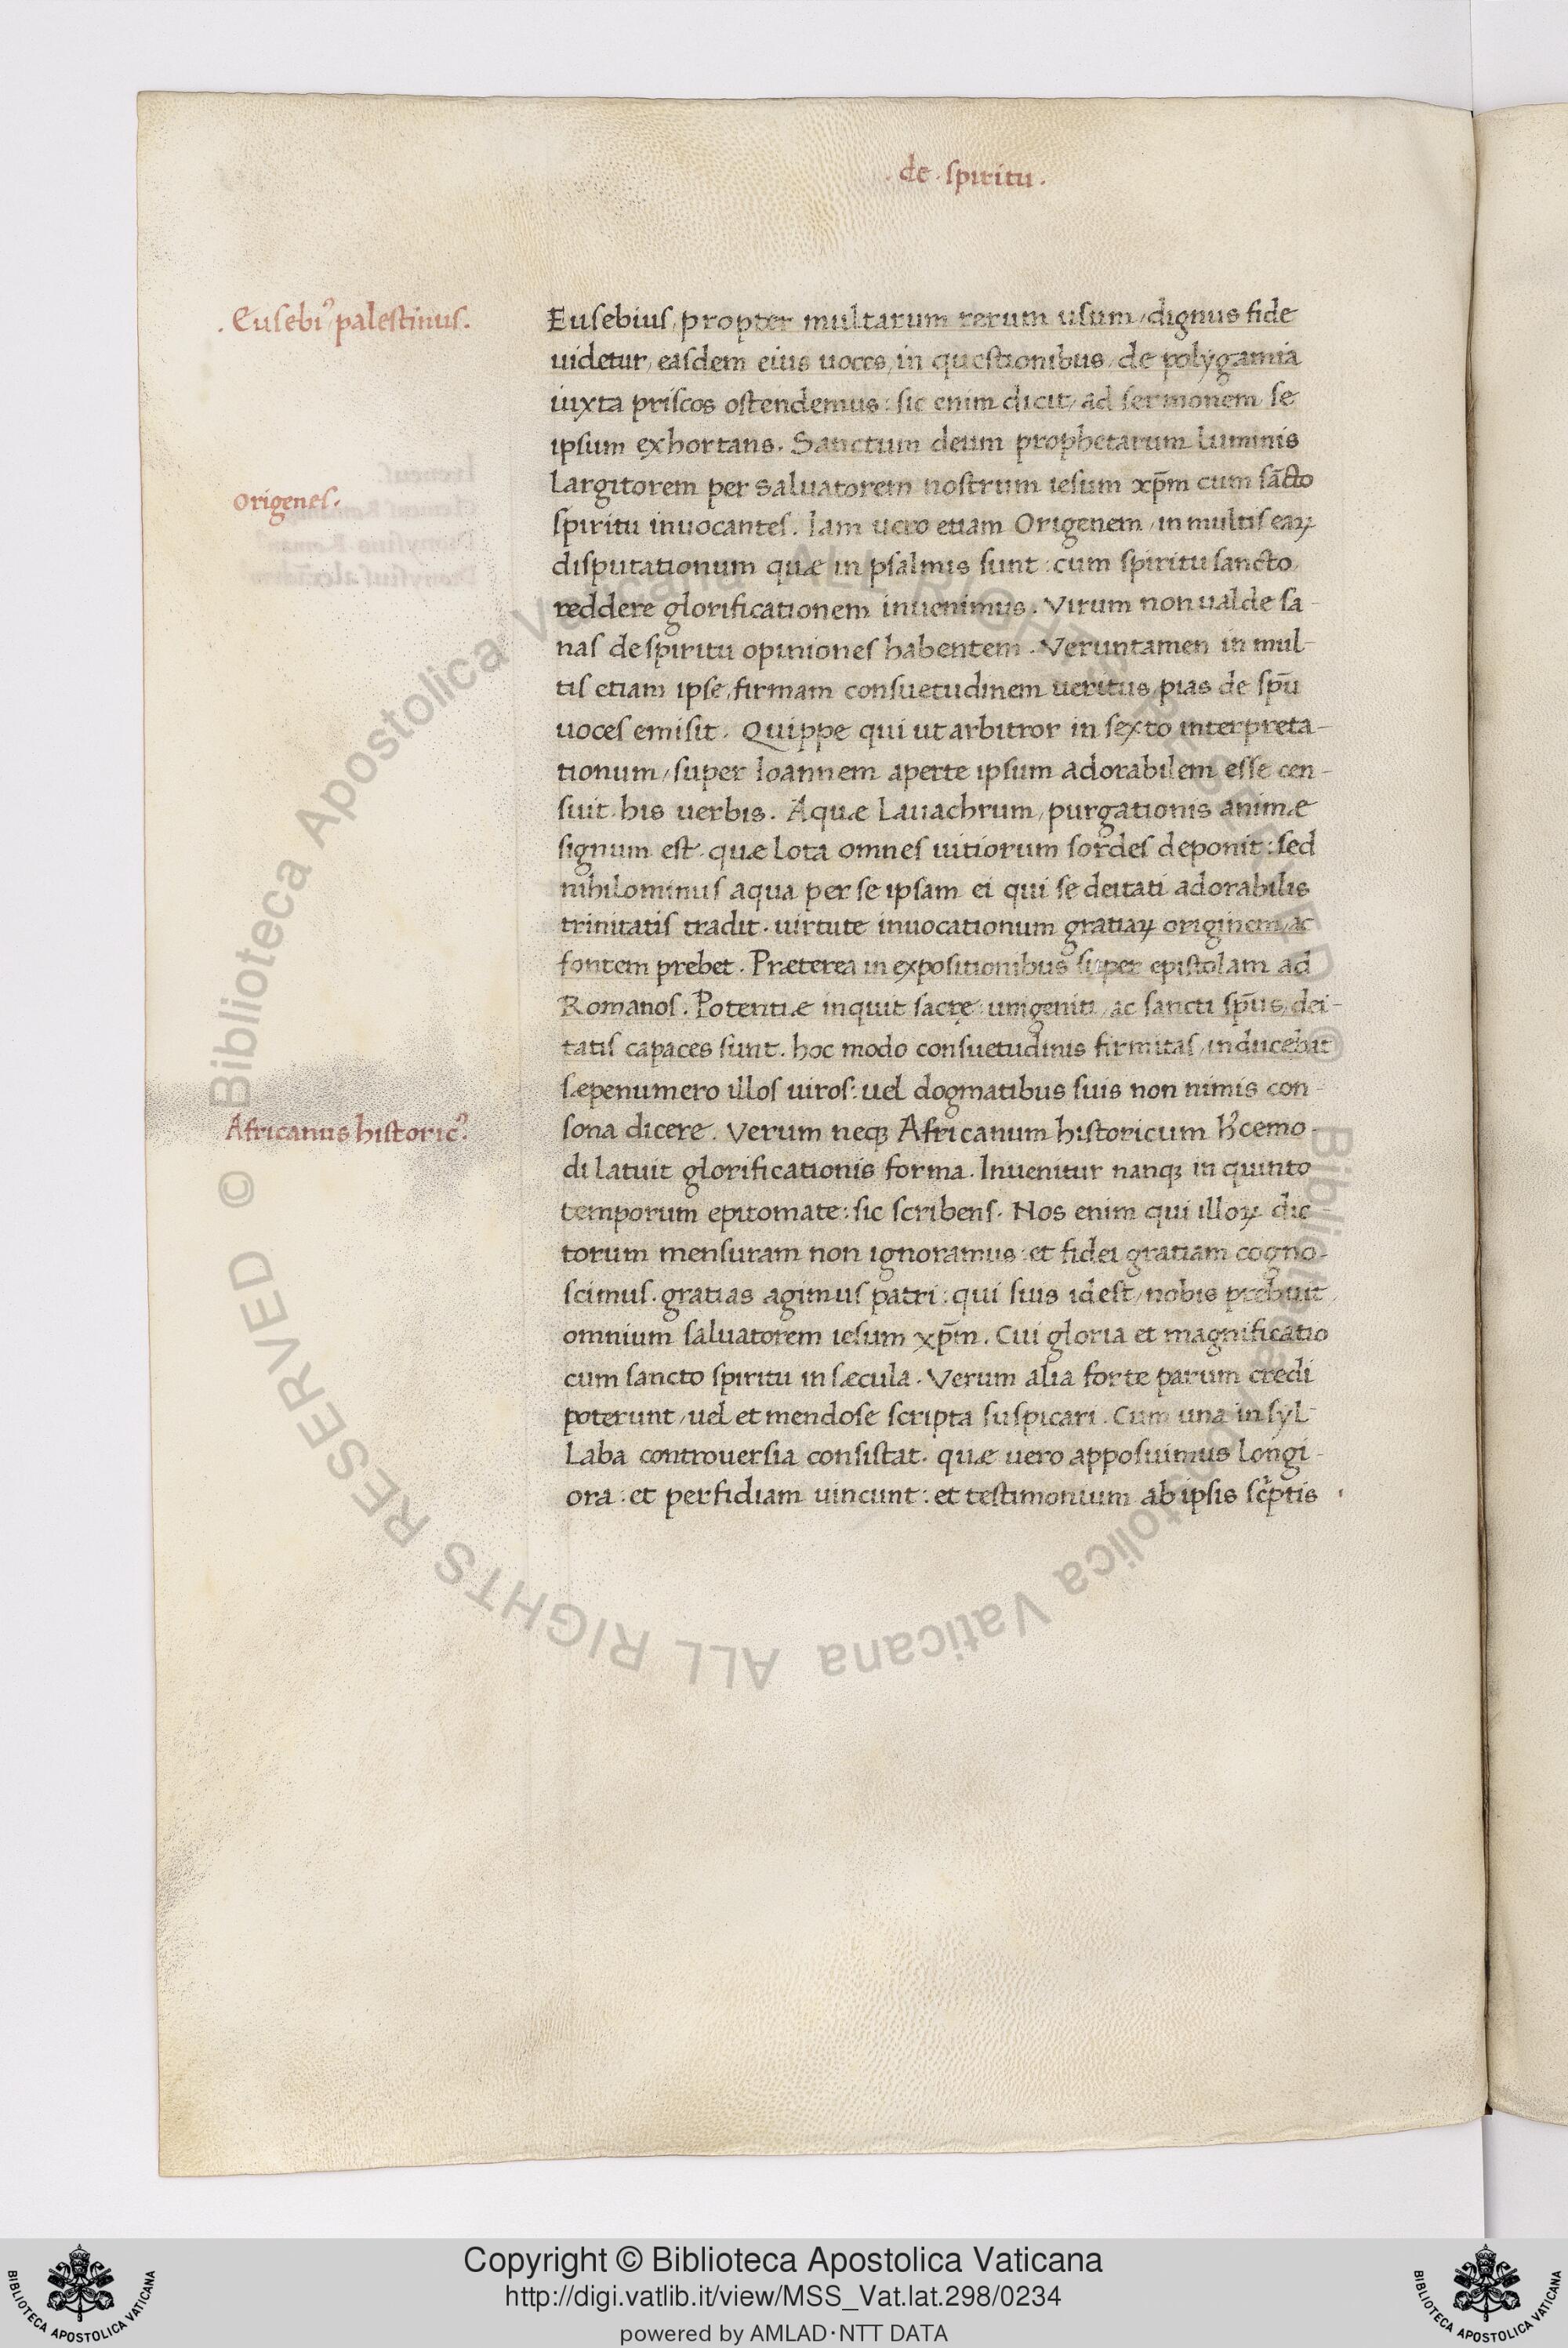 . de . spiritu .
. Eusebi⁹ palestinus.
origenes.
Africanus historic⁹.
Eusebius, propter multarum rerum usum, dignus fide
uidetur, easdem eius uoces, in questionibus, de polygamia
iuxta priscos ostendemus: sic enim dicit, ad sermonem, se
ipsum exhortans. Sanctum deum prophetarum luminis
Largitorem per saluatorem nostrum iesum xp̄m cum sācto
spiritu inuocantes. Iam uero etiam Origenem, in multis eaꝝ
disputationum quæ in psalmis sunt: cum spiritu sancto,
reddere glorificationem inuenimus. Virum non ualde sa-
nas de spiritu opiniones habentem. Veruntamen in mul-
tis etiam ipse, firmam consuetudinem ueritus, pias de spū
uoces emisit. Quippe qui ut arbitror in sexto interpreta-
tionum, super Ioannem aperte ipsum adorabilem esse cen-
suit. his uerbis. Aquæ Lauachrum, purgationis animæ
signum est. quæ lota omnes uitiorum sordes deponit: sed
nihilominus aqua per se ipsam ei qui se deitati adorabilis
trinitatis tradit. uirtute inuocationum gratiaꝝ originem, ac
fontem prebet. Præterea in expositionibus super epistolam ad
Romanos. Potentiæ inquit sacrę: unigeniti, ac sancti sp̄us, dei-
tatis capaces sunt. hoc modo consuetudinis firmitas, inducebat
sæpenumero illos uiros: uel dogmatibus suis non nimis con-
sona dicere. Verum neqꝫ Africanum historicum h⁹cemo-
di latuit glorificationis forma. Inuenitur nanqꝫ in quinto
temporum epitomate: sic scribens. Nos enim qui illoꝝ dic
torum mensuram non ignoramus: et fidei gratiam cogno-
scimus. gratias agimus patri: qui suis idest, nobis prebuit,
omnium saluatorem iesum xp̄m. Cui gloria et magnificatio
cum sancto spiritu in sæcula. Verum alia forte parum credi
poterunt, uel et mendose scripta suspicari. Cum una in syl
Laba controuersia consistat. quæ uero apposuimus longi-
ora: et perfidiam uincunt: et testimonium ab ipsis scͥptis
© Biblioteca Apostolica Vaticana ALL RIGHTS RESERVED © Biblioteca Apostolica Vaticana ALL RIGHTS RESERVED
BIBLIOTECA APOSTOLICA VATICANA
Copyright © Biblioteca Apostolica Vaticana
http://digi.vatlib.it/view/MSS_Vat.lat.298/0234
powered by AMLAD·NTT DATA
BIBLIOTECA APOSTOLICA VATICANA